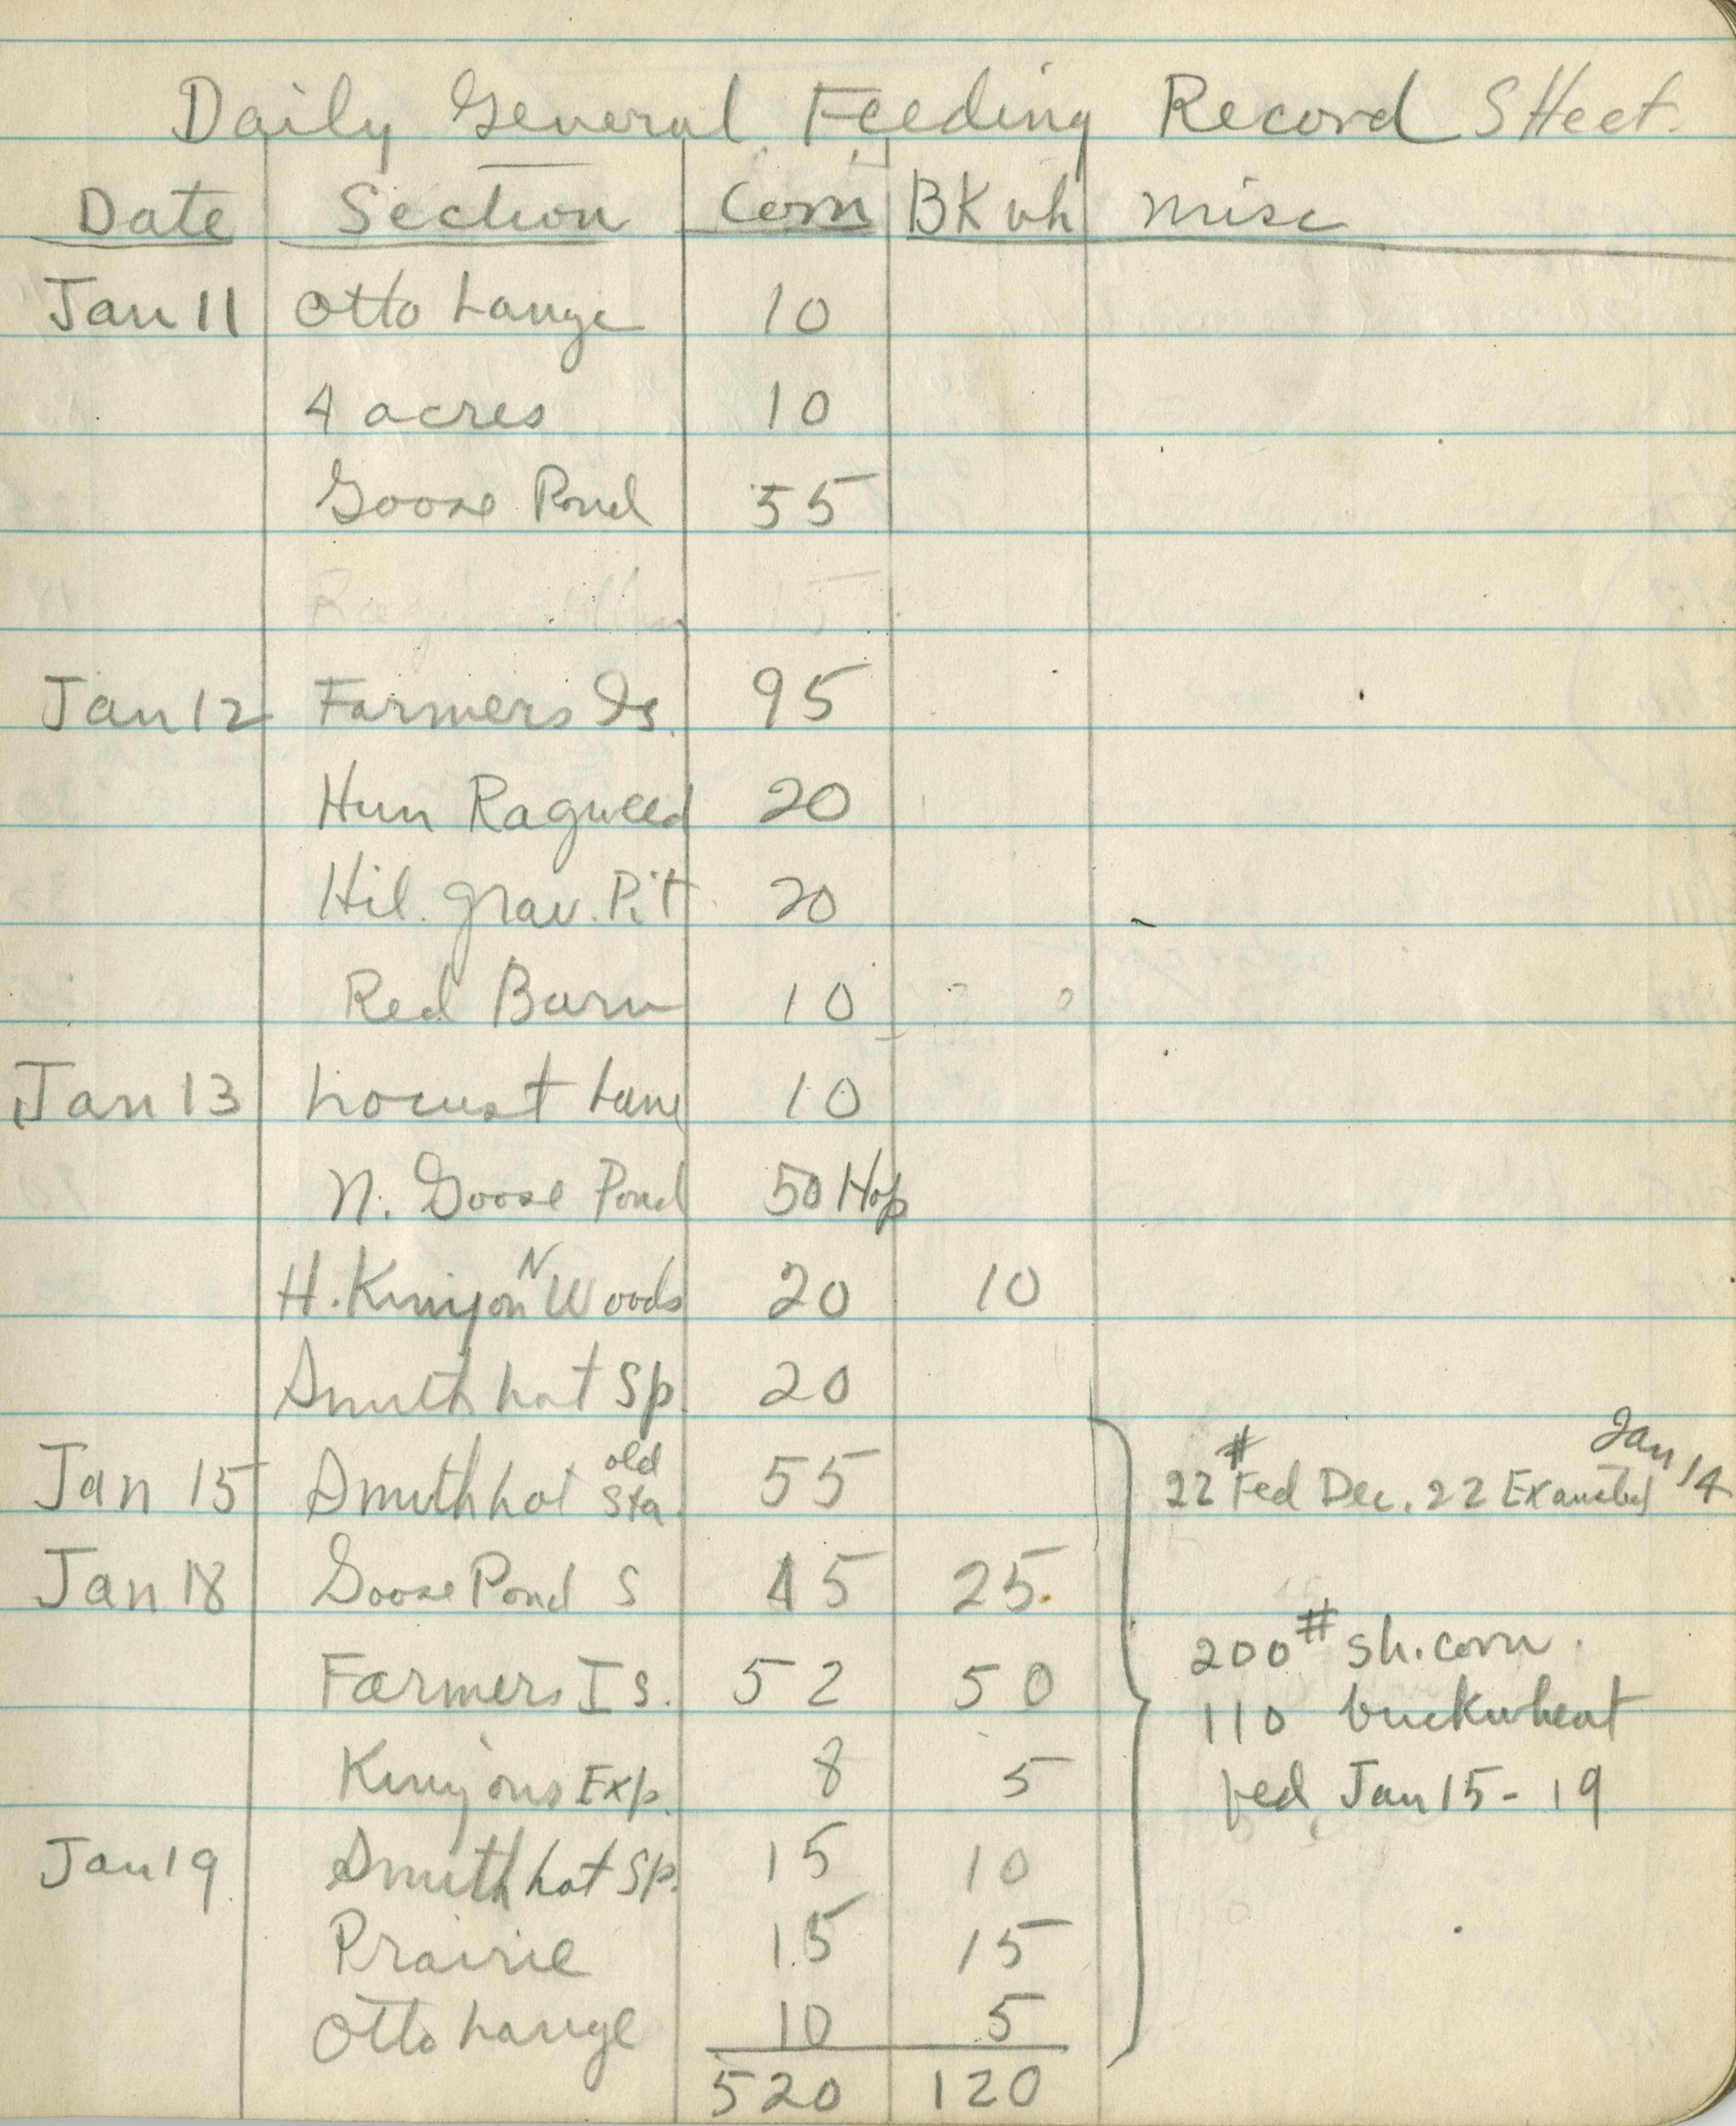 Daily General Feeding Record SHeet.
Date Section Corn BKwh misc
Jan 11 Otto Lange 10
4 acres 10
Goose Pond 55
Jan 12 Farmers Is. 95
Hun Ragweed 20
Hil. grav. Pit 20
Red Barn 10
Jan 13 Locust Lane 10
N. Goose Pond 50 Hop
H. Kinyon N Woods 20 10
Smith hot Sp. 20
Jan 15 Smith hot old Sta. 55 22 # Fed Dec. 22 Exausted Jan 14
Jan 18 Goose Pond S 45 25
200 # sh. corn.
Farmers Is. 52 50
110 buckwheat
Kinyons Exp. 8 5
fed Jan 15 - 19
Jan 19 Smith hot Sp. 15 10
Prairie 15 15
Otto Lange 10 5
520 120